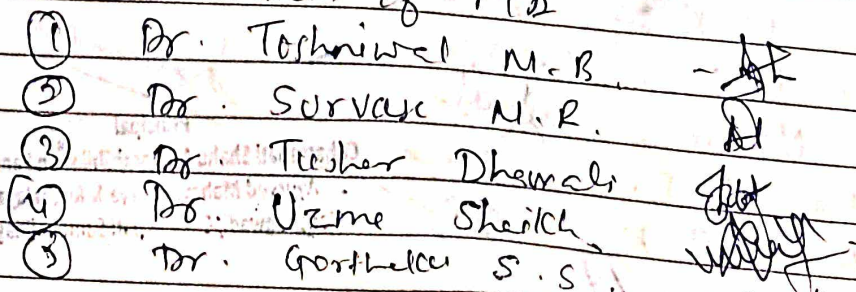 ① Dr. Toshniwal M.B.
② Dr. Survase N.R.
③ Dr. Tushar Dhawale
④ Dr. Uzma Shaikh
⑤ Dr. S.S.